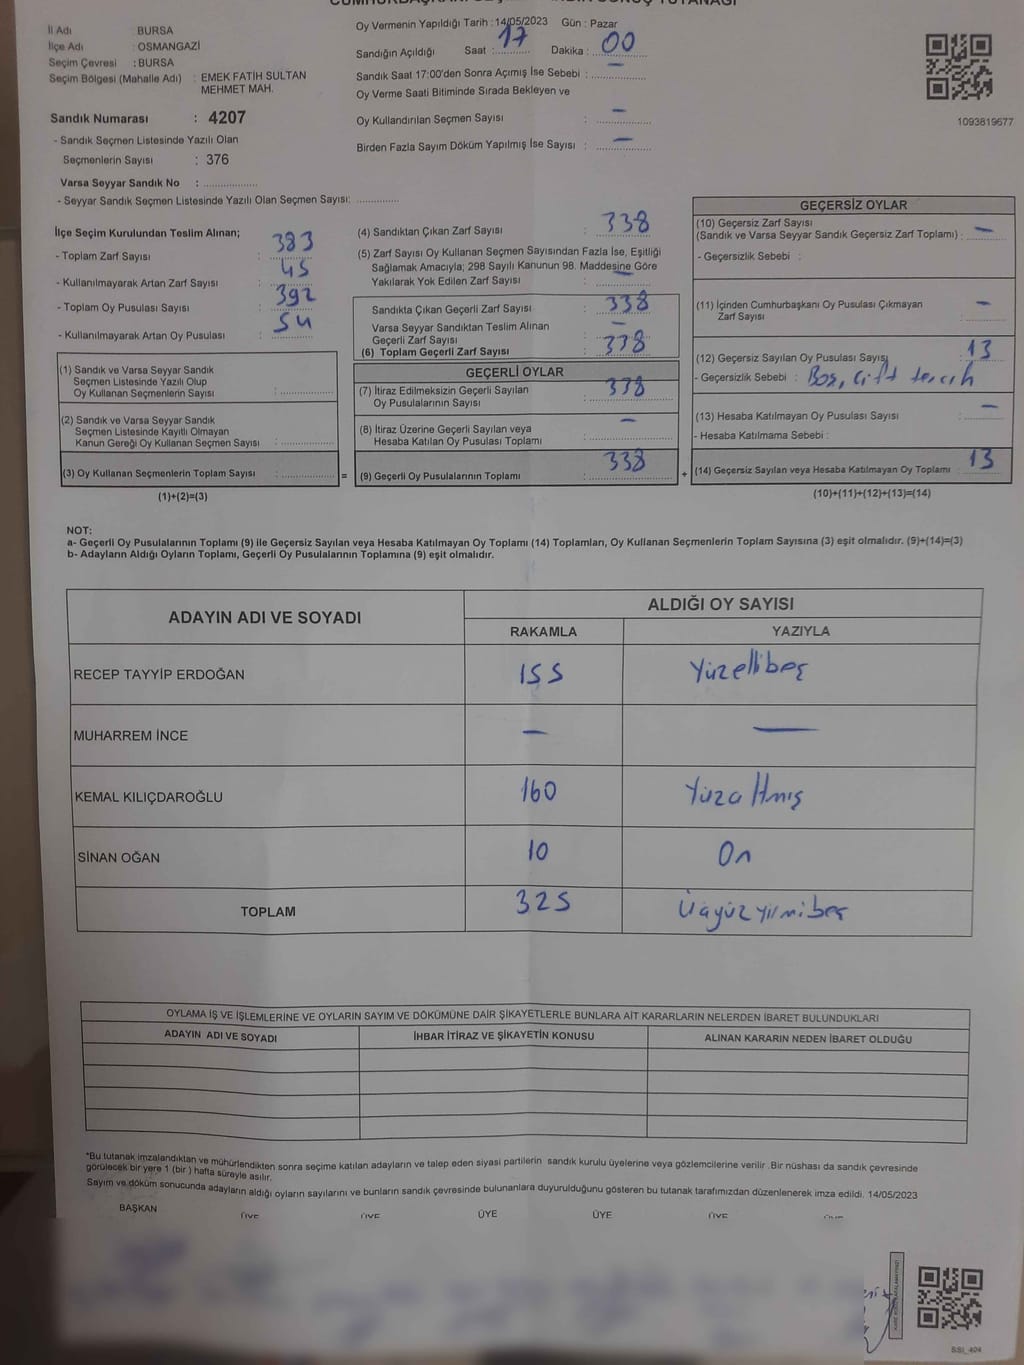 İl Adı : BURSA
İlçe Adı : OSMANGAZİ
Seçim Çevresi : BURSA
Seçim Bölgesi (Mahalle Adı) : EMEK FATİH SULTAN
MEHMET MAH.
Sandık Numarası : 4207
- Sandık Seçmen Listesinde Yazılı Olan
Seçmenlerin Sayısı : 376
Varsa Seyyar Sandık No :
- Seyyar Sandık Seçmen Listesinde Yazılı Olan Seçmen Sayısı:
Oy Vermenin Yapıldığı Tarih : 14/05/2023 Gün : Pazar
Sandığın Açıldığı Saat : 17 Dakika : 00
Sandık Saat 17:00'den Sonra Açımış İse Sebebi : —
Oy Verme Saati Bitiminde Sırada Bekleyen ve
Oy Kullandırılan Seçmen Sayısı : —
Birden Fazla Sayım Döküm Yapılmış İse Sayısı : —
1093819677
İlçe Seçim Kurulundan Teslim Alınan;
- Toplam Zarf Sayısı : 383
- Kullanılmayarak Artan Zarf Sayısı : 45
- Toplam Oy Pusulası Sayısı : 392
- Kullanılmayarak Artan Oy Pusulası : 54
(1) Sandık ve Varsa Seyyar Sandık
Seçmen Listesinde Yazılı Olup
Oy Kullanan Seçmenlerin Sayısı :
(2) Sandık ve Varsa Seyyar Sandık
Seçmen Listesinde Kayıtlı Olmayan
Kanun Gereği Oy Kullanan Seçmen Sayısı :
(3) Oy Kullanan Seçmenlerin Toplam Sayısı : =
(1)+(2)=(3)
(4) Sandıktan Çıkan Zarf Sayısı : 338
(5) Zarf Sayısı Oy Kullanan Seçmen Sayısından Fazla İse, Eşitliği
Sağlamak Amacıyla; 298 Sayılı Kanunun 98. Maddesine Göre
Yakılarak Yok Edilen Zarf Sayısı : —
Sandıkta Çıkan Geçerli Zarf Sayısı : 338
Varsa Seyyar Sandıktan Teslim Alınan
Geçerli Zarf Sayısı : —
(6) Toplam Geçerli Zarf Sayısı : 338
GEÇERLİ OYLAR
(7) İtiraz Edilmeksizin Geçerli Sayılan
Oy Pusulalarının Sayısı : 338
(8) İtiraz Üzerine Geçerli Sayılan veya
Hesaba Katılan Oy Pusulası Toplamı : —
(9) Geçerli Oy Pusulalarının Toplamı : 338 +
GEÇERSİZ OYLAR
(10) Geçersiz Zarf Sayısı
(Sandık ve Varsa Seyyar Sandık Geçersiz Zarf Toplamı) : —
- Geçersizlik Sebebi :
(11) İçinden Cumhurbaşkanı Oy Pusulası Çıkmayan
Zarf Sayısı : —
(12) Geçersiz Sayılan Oy Pusulası Sayısı : 13
- Geçersizlik Sebebi : Boş, çift tercih
(13) Hesaba Katılmayan Oy Pusulası Sayısı : —
- Hesaba Katılmama Sebebi :
(14) Geçersiz Sayılan veya Hesaba Katılmayan Oy Toplamı : 13
(10)+(11)+(12)+(13)=(14)
NOT:
a- Geçerli Oy Pusulalarının Toplamı (9) ile Geçersiz Sayılan veya Hesaba Katılmayan Oy Toplamı (14) Toplamları, Oy Kullanan Seçmenlerin Toplam Sayısına (3) eşit olmalıdır. (9)+(14)=(3)
b- Adayların Aldığı Oyların Toplamı, Geçerli Oy Pusulalarının Toplamına (9) eşit olmalıdır.
ADAYIN ADI VE SOYADI ALDIĞI OY SAYISI
RAKAMLA YAZIYLA
RECEP TAYYİP ERDOĞAN 155 Yüzellibeş
MUHARREM İNCE — —
KEMAL KILIÇDAROĞLU 160 Yüzaltmış
SİNAN OĞAN 10 On
TOPLAM 325 Üçyüzyirmibeş
OYLAMA İŞ VE İŞLEMLERİNE VE OYLARIN SAYIM VE DÖKÜMÜNE DAİR ŞİKAYETLERLE BUNLARA AİT KARARLARIN NELERDEN İBARET BULUNDUKLARI
ADAYIN ADI VE SOYADI İHBAR İTİRAZ VE ŞİKAYETİN KONUSU ALINAN KARARIN NEDEN İBARET OLDUĞU
*Bu tutanak imzalandıktan ve mühürlendikten sonra seçime katılan adayların ve talep eden siyasi partilerin sandık kurulu üyelerine veya gözlemcilerine verilir .Bir nüshası da sandık çevresinde
görülecek bir yere 1 (bir ) hafta süreyle asılır.
Sayım ve döküm sonucunda adayların aldığı oyların sayılarını ve bunların sandık çevresinde bulunanlara duyurulduğunu gösteren bu tutanak tarafımızdan düzenlenerek imza edildi. 14/05/2023
BAŞKAN ÜYE ÜYE ÜYE ÜYE ÜYE
SSI_404